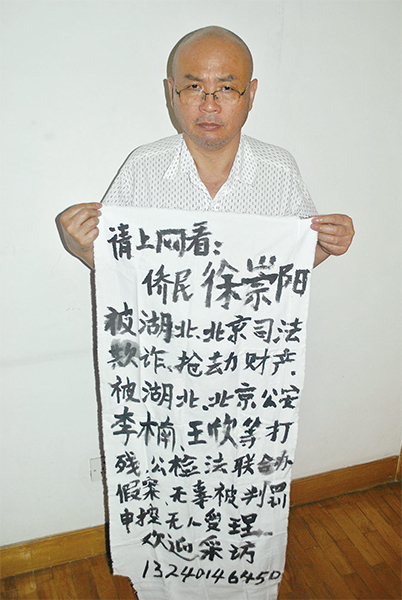 请上网看：
侨民徐崇阳
被湖北、北京司法
欺诈、抢劫财产、
被湖北、北京公安
李楠、王欣等打
残、公检法联合办
假案、无辜被判罚
申控无人受理
欢迎采访
13240146450